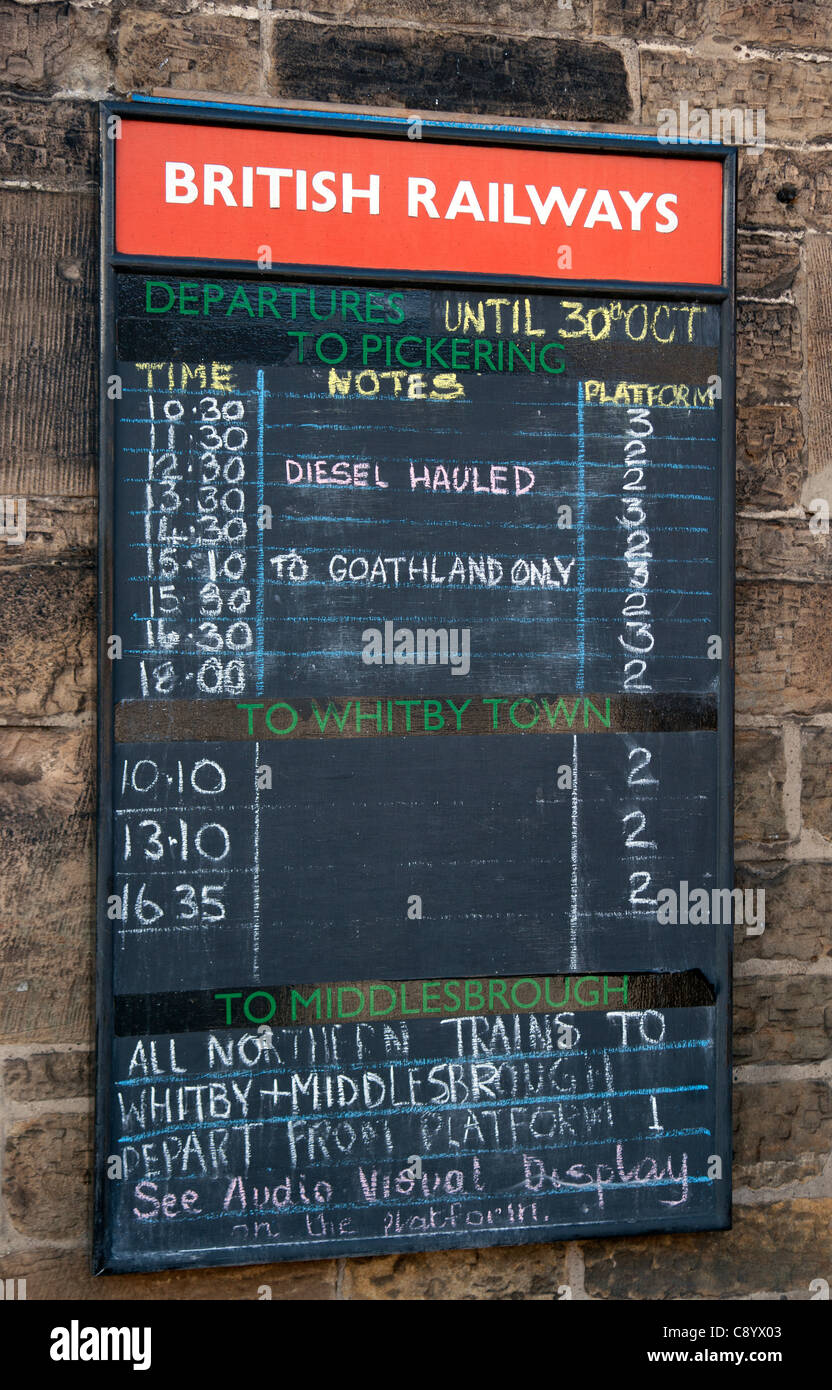 BRITISH RAILWAYS
DEPARTURES UNTIL 30th OCT
TO PICKERING
TIME NOTES PLATFORM
10·30 3
11·30 2
12·30 DIESEL HAULED 2
13·30 3
14·30 2
15·10 TO GOATHLAND ONLY 3
15·30 2
16·30 3
18·00 2
TO WHITBY TOWN
10·10 2
13·10 2
16 35 2
TO MIDDLESBROUGH
ALL NORTHERN TRAINS TO
WHITBY + MIDDLESBROUGH
DEPART FROM PLATFORM 1
See Audio Visual Display
on the platform.
alamy
Image ID: C8YX03
www.alamy.com